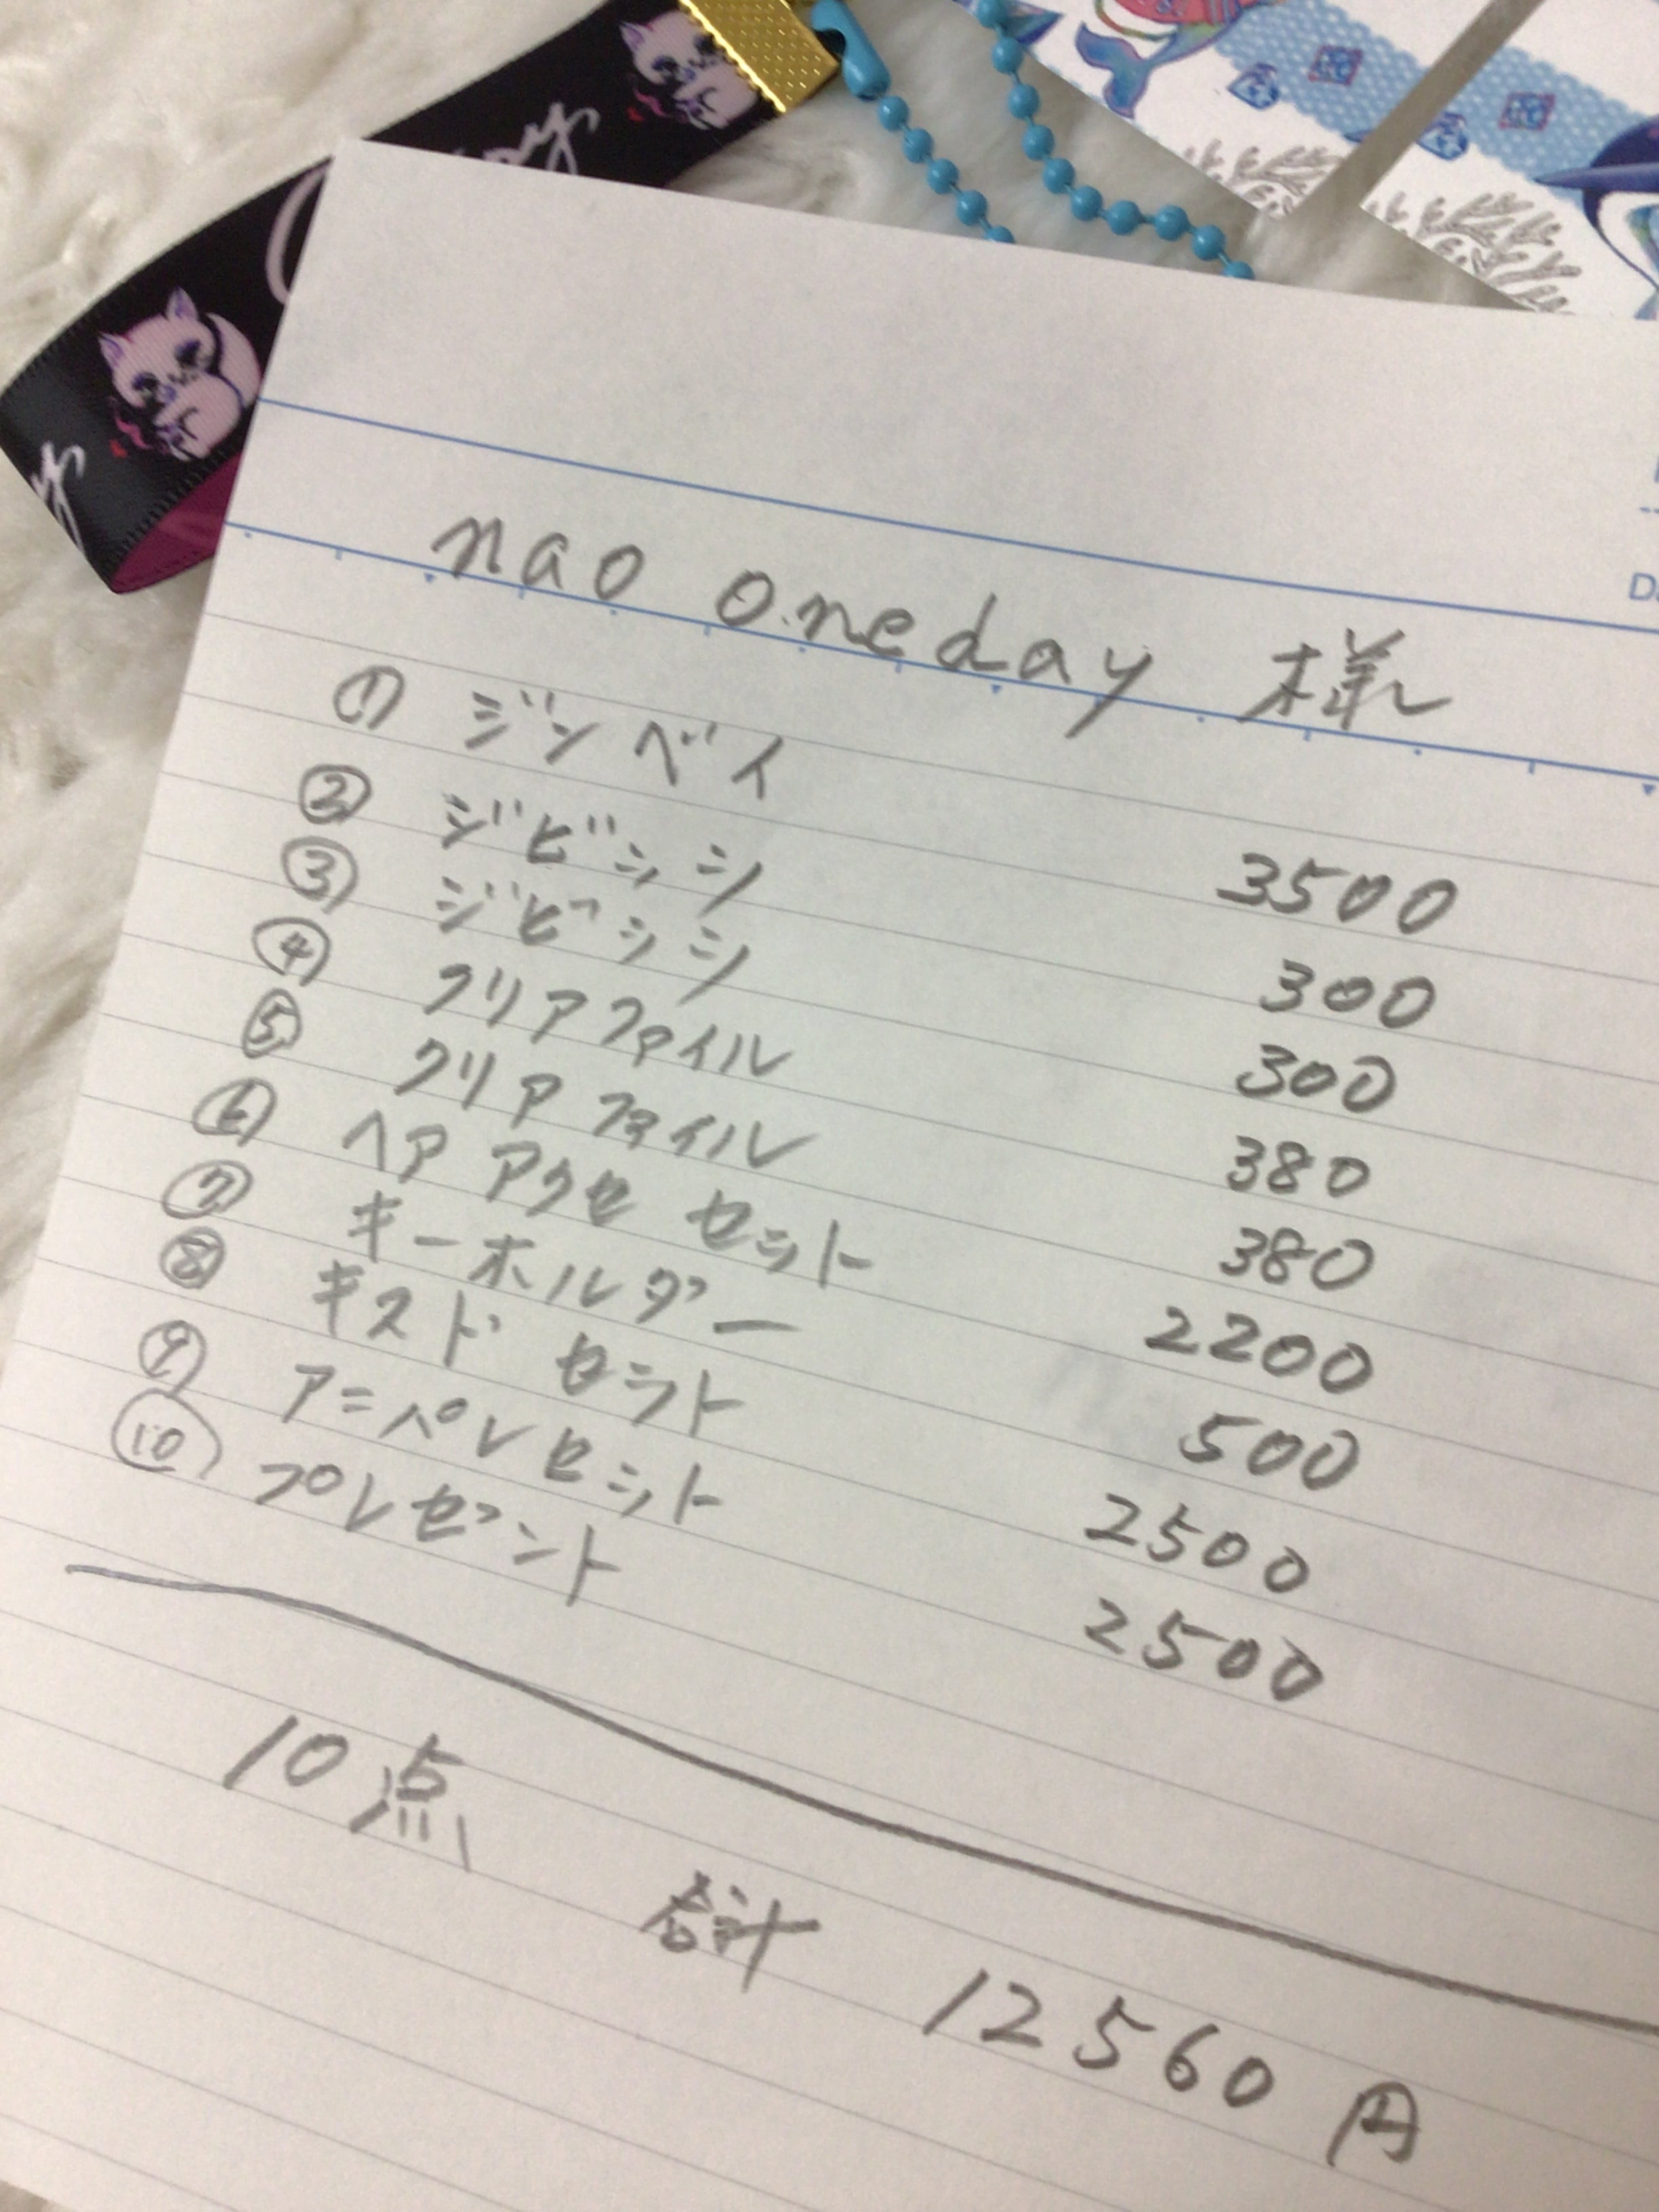 nao oneday 様
① ジンベイ 3500
② ジビッシ 300
③ ジビッシ 300
④ クリアファイル 380
⑤ クリアファイル 380
⑥ ヘアアクセ セット 2200
⑦ キーホルダー 500
⑧ キスド セット 2500
⑨ アニパレセット 2500
⑩ プレゼント
10点 総計 12560円